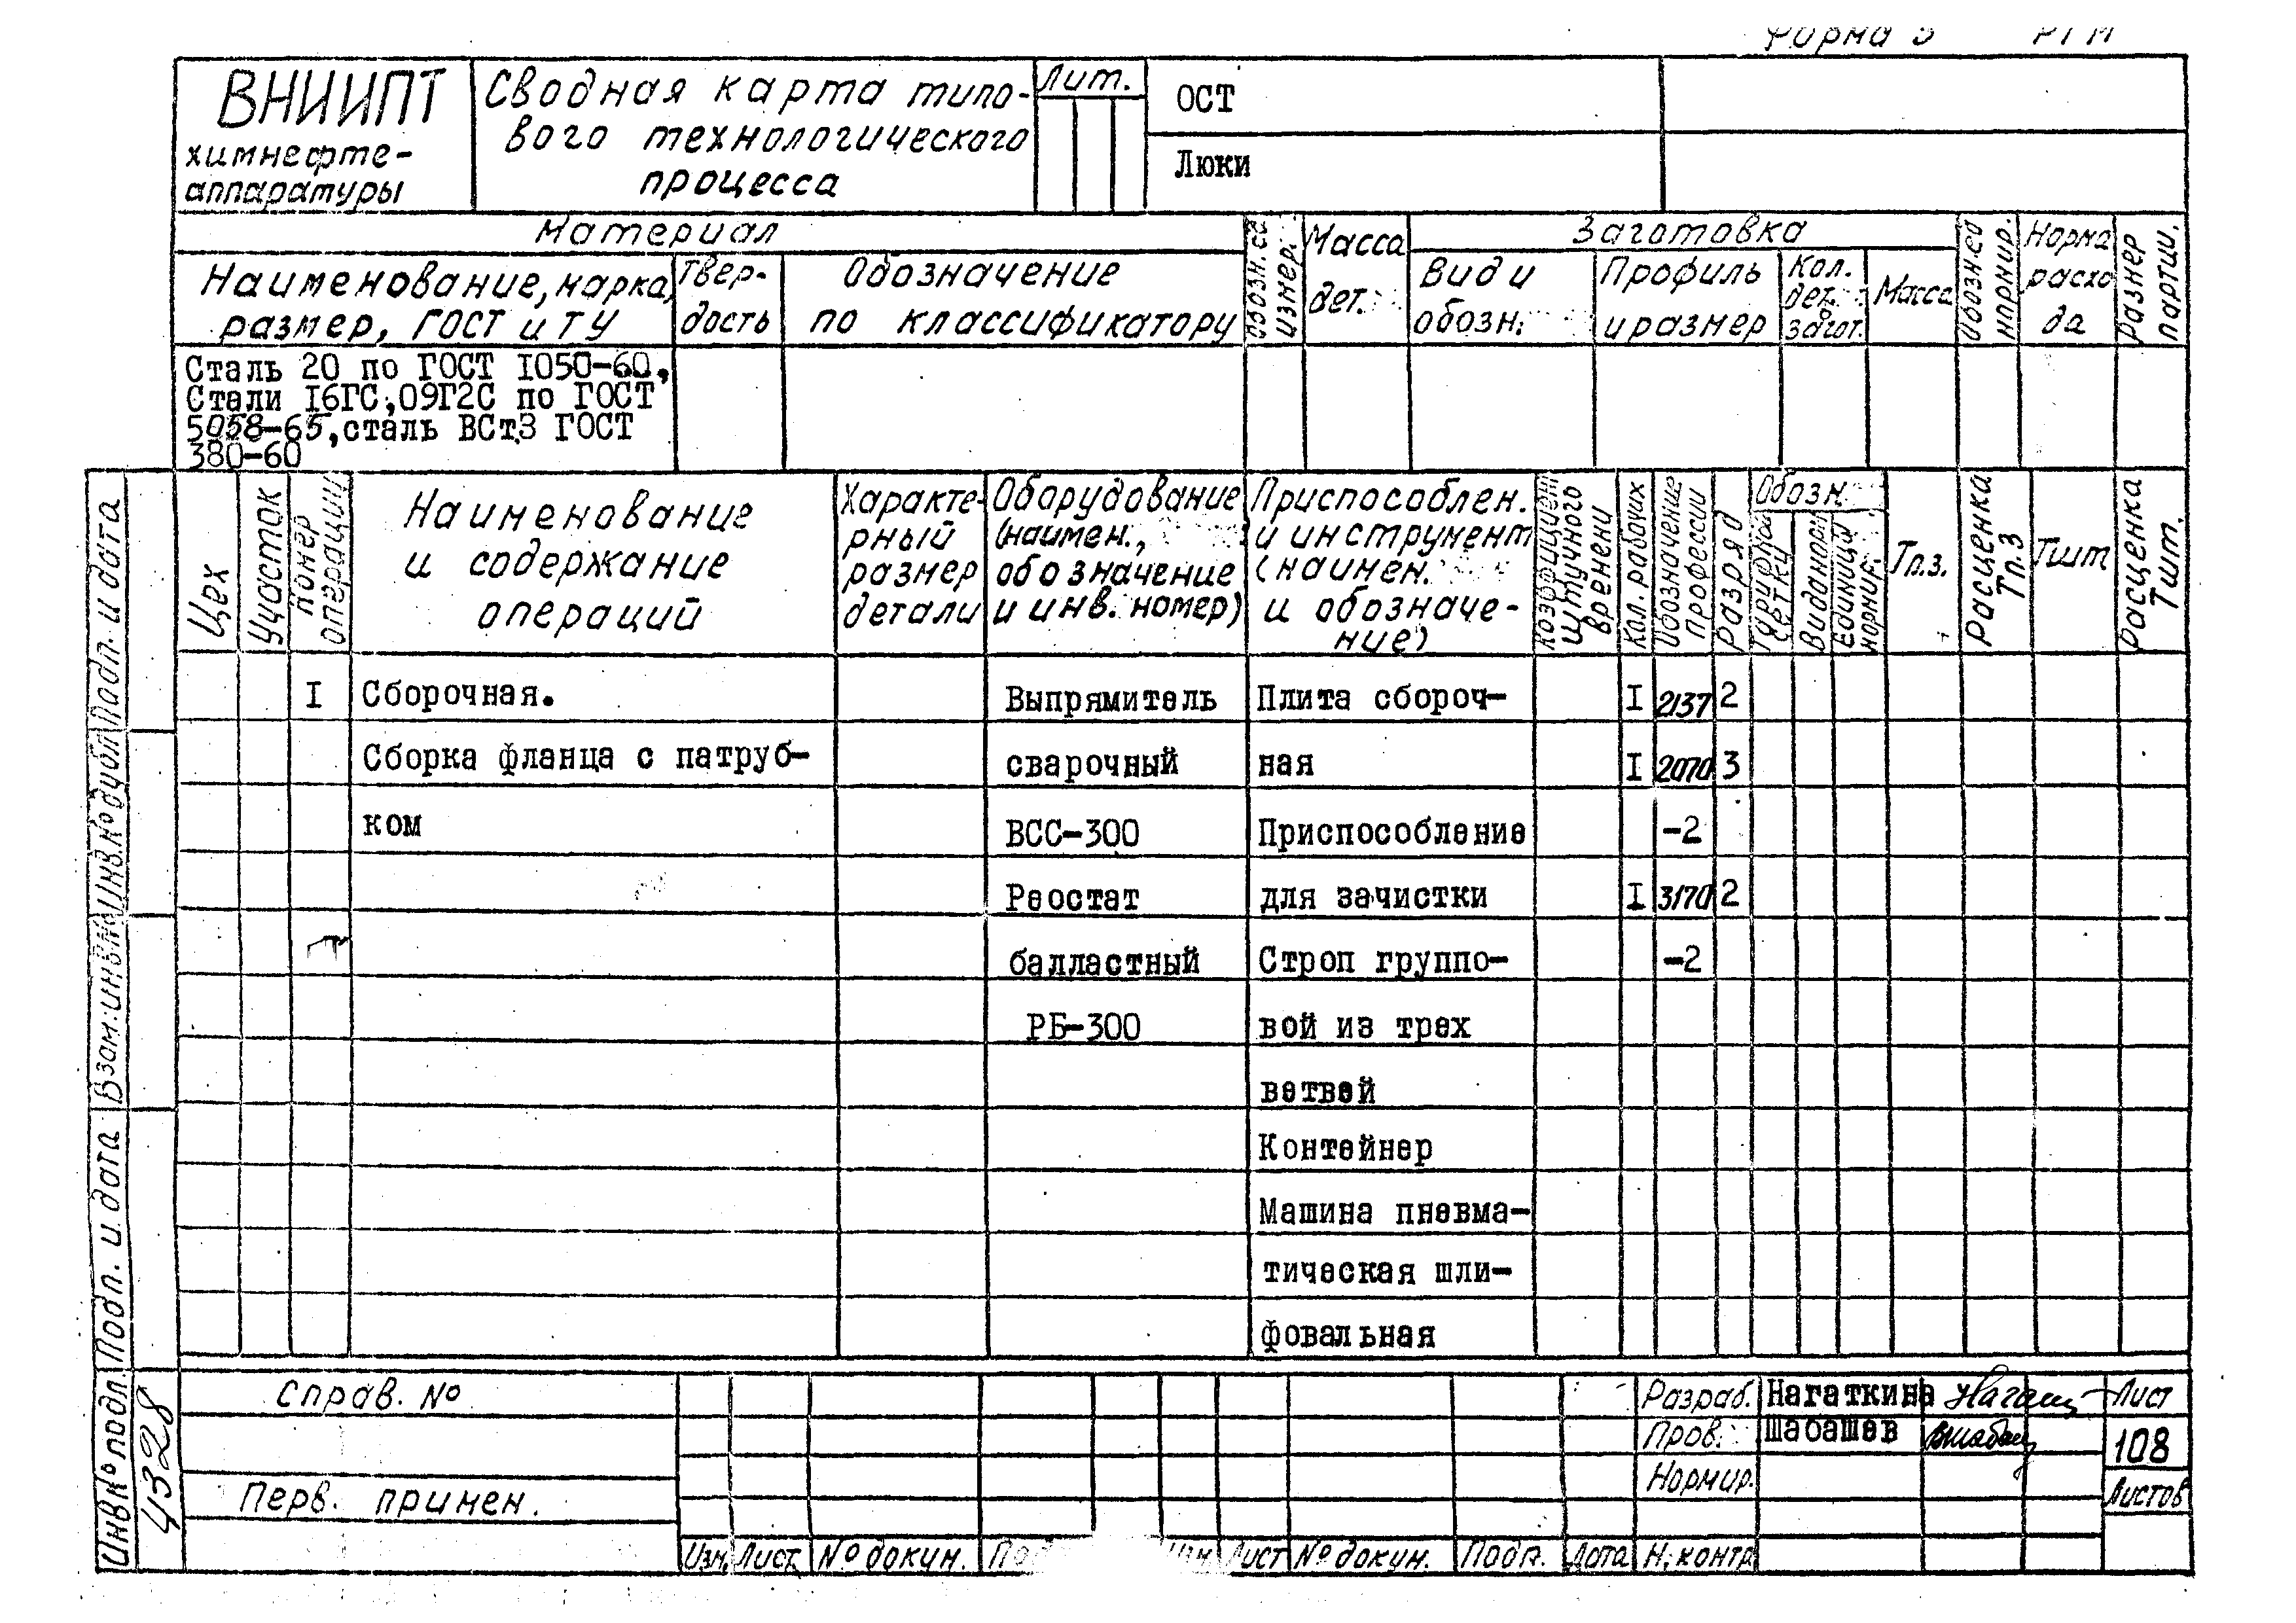 Форма 3 РТМ
ВНИИПТ
химнефте-
аппаратуры
Сводная карта типо-
вого технологического
процесса
Лит.
ОСТ
Люки
Материал
Наименование, марка,
размер, ГОСТ и ТУ
Твер-
дость
Обозначение
по классификатору
Обозн. ед
измер.
Масса
дет.
Заготовка
Вид и
обозн.
Профиль
и размер
Кол.
дет.
загот.
Масса
нормир.
Норма
расхо
да
Размер
партии.
Сталь 20 по ГОСТ I050-60,
Стали I6ГС,09Г2С по ГОСТ
5058-65,сталь ВСт.3 ГОСТ
380-60
Цех
Участок
Номер
операции
Наименование
и содержание
операций
Характе-
рный
размер
детали
Оборудование
(наимен.,
обозначение
и инв. номер)
Приспособлен.
и инструмент
(наимен.
и обозначе-
ние)
Коэффициент
штучного
времени
Кол. рабочих
Обозначение
профессии
Разряд
Обозн.
сетки
Единица
нормир.
Тп.з.
Расценка
Тп.з
Тшт
Расценка
Тшт.
I Сборочная. Выпрямитель Плита сбороч- I 2137 2
Сборка фланца с патруб- сварочный ная I 2070 3
ком ВСС-300 Приспособление -2
Реостат для зачистки I 3170 2
балластный Строп группо- -2
РБ-300 вой из трех
ветвей
Контейнер
Машина пневма-
тическая шли-
фовальная
Подп. и дата
Инв.№ дубл
Взам.инв.№
Подп. и дата
Инв№подл.
4328
Справ. №
Перв. примен.
Изм. Лист № докум. Изм Лист № докум. Подп. Дата
Разраб. Нагаткина
Пров. Шабашев
Нормир.
Н.контр
Лист
108
Листов